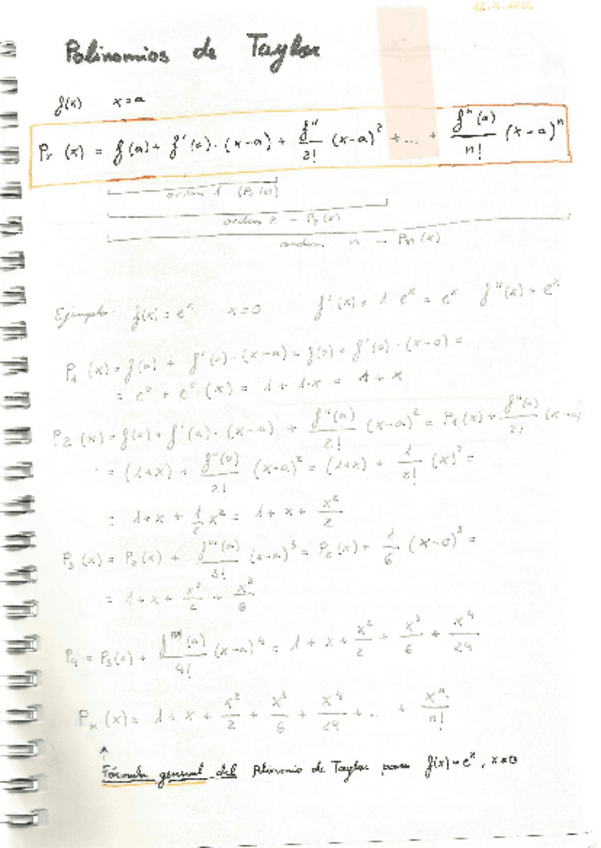 Polinomios de Taylor
f(x) x=a
Pr (x) = f(a) + f'(a)·(x-a) + f''/2! (x-a)² + ... + fⁿ(a)/n! (x-a)ⁿ
orden 1 (P₁(x))
orden 2 - P₂(x)
orden n - Pn(x)
Ejemplo: f(x) = eˣ x=0 f'(x) = 1·eˣ = eˣ f''(x) = eˣ
P₁ (x) = f(a) + f'(a)·(x-a) = f(0) + f'(0)·(x-0) =
= e⁰ + e⁰·(x) = 1 + 1·x = 1+x
P₂ (x) = f(a) + f'(a)·(x-a) + f''(a)/2! (x-a)² = P₁(x) + f''(a)/2! (x-a)
= (1+x) + f''(0)/2! (x-0)² = (1+x) + 1/2! (x)² =
= 1+x + 1/2 x² = 1+x+ x²/2
P₃ (x) = P₂(x) + f'''(a)/3! (x-a)³ = P₂(x) + 1/6 (x-0)³ =
= 1+x+ x²/2 + x³/6
P₄ = P₃(x) + (a)/4! (x-a)⁴ = 1+x+ x²/2 + x³/6 + x⁴/24
Pn (x) = 1+x+ x²/2 + x³/6 + x⁴/24 + ... + xⁿ/n!
↑
Fórmula general del Polinomio de Taylor para f(x) = eˣ, x=0